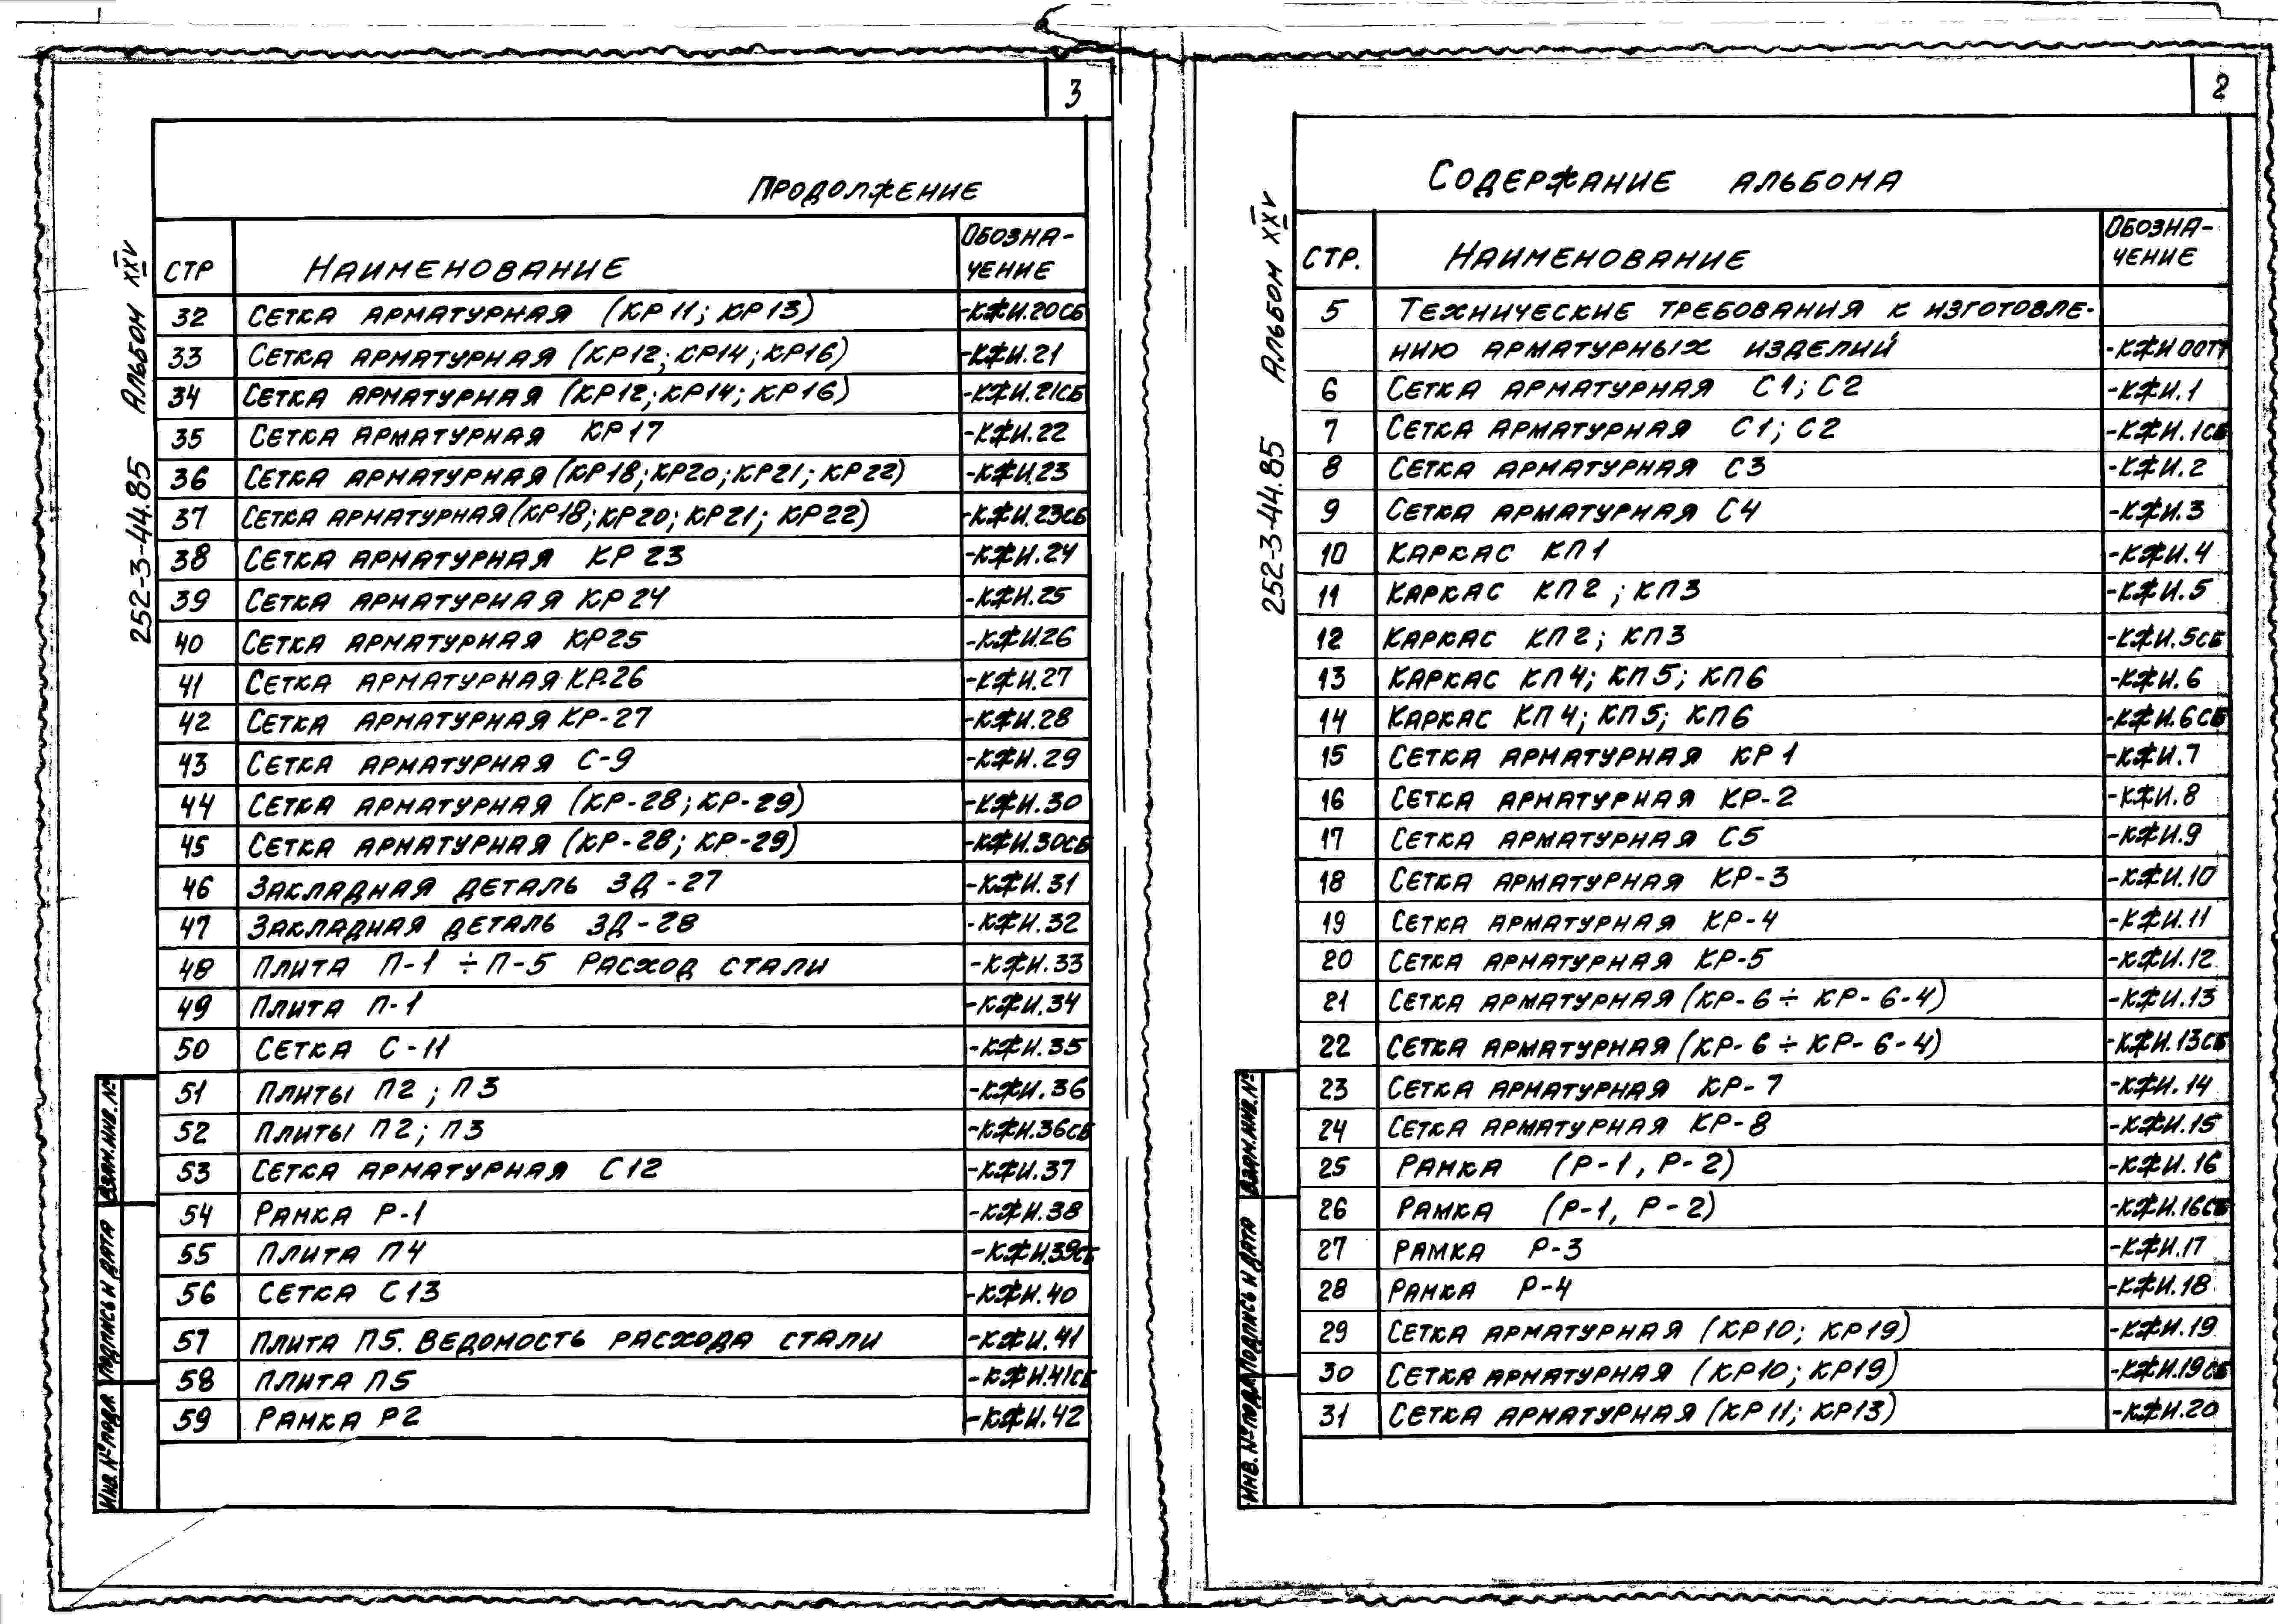 3
Продолжение
252-3-44.85 Альбом XXV
Стр Наименование Обозна-
чение
32 Сетка арматурная (КР11; КР13) -КЖИ.20СБ
33 Сетка арматурная (КР12; КР14; КР16) -КЖИ.21
34 Сетка арматурная (КР12; КР14; КР16) -КЖИ.21СБ
35 Сетка арматурная КР17 -КЖИ.22
36 Сетка арматурная (КР18; КР20; КР21; КР22) -КЖИ.23
37 Сетка арматурная (КР18; КР20; КР21; КР22) -КЖИ.23СБ
38 Сетка арматурная КР23 -КЖИ.24
39 Сетка арматурная КР24 -КЖИ.25
40 Сетка арматурная КР25 -КЖИ.26
41 Сетка арматурная КР.26 -КЖИ.27
42 Сетка арматурная КР-27 -КЖИ.28
43 Сетка арматурная С-9 -КЖИ.29
44 Сетка арматурная (КР-28; КР-29) -КЖИ.30
45 Сетка арматурная (КР-28; КР-29) -КЖИ.30СБ
46 Закладная деталь ЗД-27 -КЖИ.31
47 Закладная деталь ЗД-28 -КЖИ.32
48 Плита П-1 ÷ П-5 расход стали -КЖИ.33
49 Плита П-1 -КЖИ.34
50 Сетка С-11 -КЖИ.35
51 Плиты П2; П3 -КЖИ.36
52 Плиты П2; П3 -КЖИ.36СБ
53 Сетка арматурная С12 -КЖИ.37
54 Рамка Р-1 -КЖИ.38
55 Плита П4 -КЖИ.39СБ
56 Сетка С13 -КЖИ.40
57 Плита П5. Ведомость расхода стали -КЖИ.41
58 Плита П5 -КЖИ.41СБ
59 Рамка Р2 -КЖИ.42
Взам.инв.№
Подпись и дата
Инв.№подл
2
Содержание альбома
252-3-44.85 Альбом XXV
Стр. Наименование Обозна-
чение
5 Технические требования к изготовле-
нию арматурных изделий -КЖИ00ТТ
6 Сетка арматурная С1; С2 -КЖИ.1
7 Сетка арматурная С1; С2 -КЖИ.1СБ
8 Сетка арматурная С3 -КЖИ.2
9 Сетка арматурная С4 -КЖИ.3
10 Каркас КП1 -КЖИ.4
11 Каркас КП2; КП3 -КЖИ.5
12 Каркас КП2; КП3 -КЖИ.5СБ
13 Каркас КП4; КП5; КП6 -КЖИ.6
14 Каркас КП4; КП5; КП6 -КЖИ.6СБ
15 Сетка арматурная КР1 -КЖИ.7
16 Сетка арматурная КР-2 -КЖИ.8
17 Сетка арматурная С5 -КЖИ.9
18 Сетка арматурная КР-3 -КЖИ.10
19 Сетка арматурная КР-4 -КЖИ.11
20 Сетка арматурная КР-5 -КЖИ.12
21 Сетка арматурная (КР-6 ÷ КР-6-4) -КЖИ.13
22 Сетка арматурная (КР-6 ÷ КР-6-4) -КЖИ.13СБ
23 Сетка арматурная КР-7 -КЖИ.14
24 Сетка арматурная КР-8 -КЖИ.15
25 Рамка (Р-1, Р-2) -КЖИ.16
26 Рамка (Р-1, Р-2) -КЖИ.16СБ
27 Рамка Р-3 -КЖИ.17
28 Рамка Р-4 -КЖИ.18
29 Сетка арматурная (КР10; КР19) -КЖИ.19
30 Сетка арматурная (КР10; КР19) -КЖИ.19СБ
31 Сетка арматурная (КР11; КР13) -КЖИ.20
Взам.инв.№
Подпись и дата
Инв.№подл